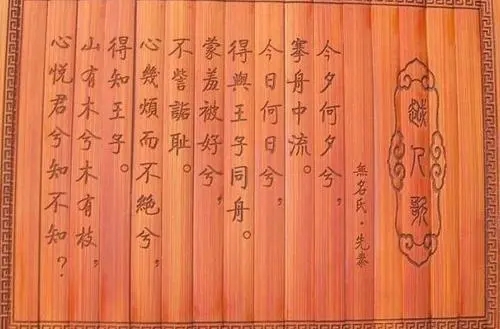 越人歌
無名氏·先秦
今夕何夕兮,
搴舟中流。
今日何日兮,
得與王子同舟。
蒙羞被好兮,
不訾詬耻。
心幾煩而不絕兮,
得知王子。
山有木兮木有枝,
心悅君兮知不知?